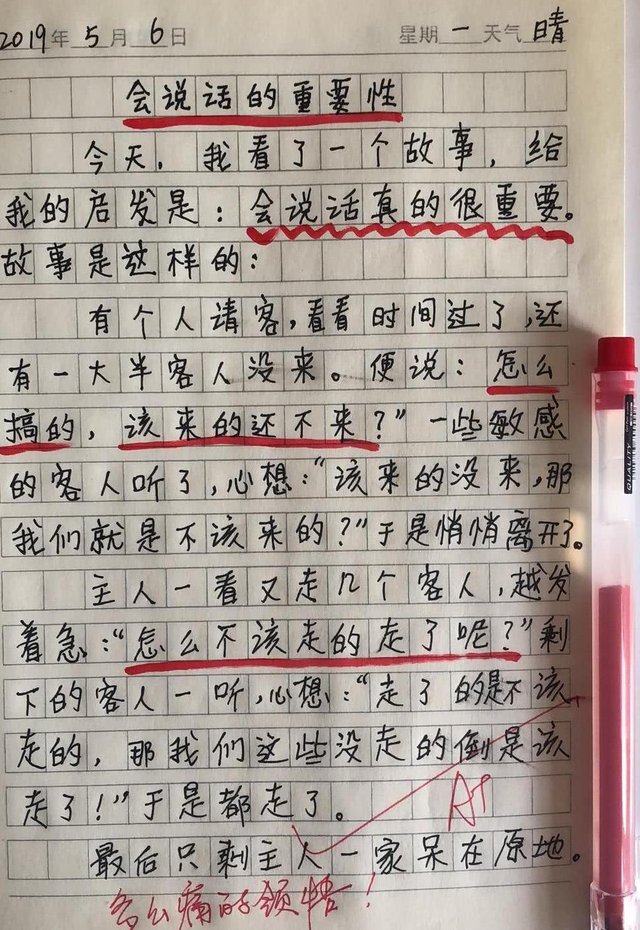 2019年5月6日 星期一 天气晴
会说话的重要性
今天，我看了一个故事，给
我的启发是：会说话真的很重要。
故事是这样的：
有个人请客，看看时间过了，还
有一大半客人没来。便说：怎么
搞的，该来的还不来？”一些敏感
的客人听了，心想：“该来的没来，那
我们就是不该来的？”于是悄悄离开了。
主人一看又走几个客人，越发
着急：“怎么不该走的走了呢？”剩
下的客人一听，心想：“走了的是不该
走的，那我们这些没走的倒是该
走了！”于是都走了。
A+
最后只剩主人一家呆在原地。
多么痛的领悟！
QUALITY